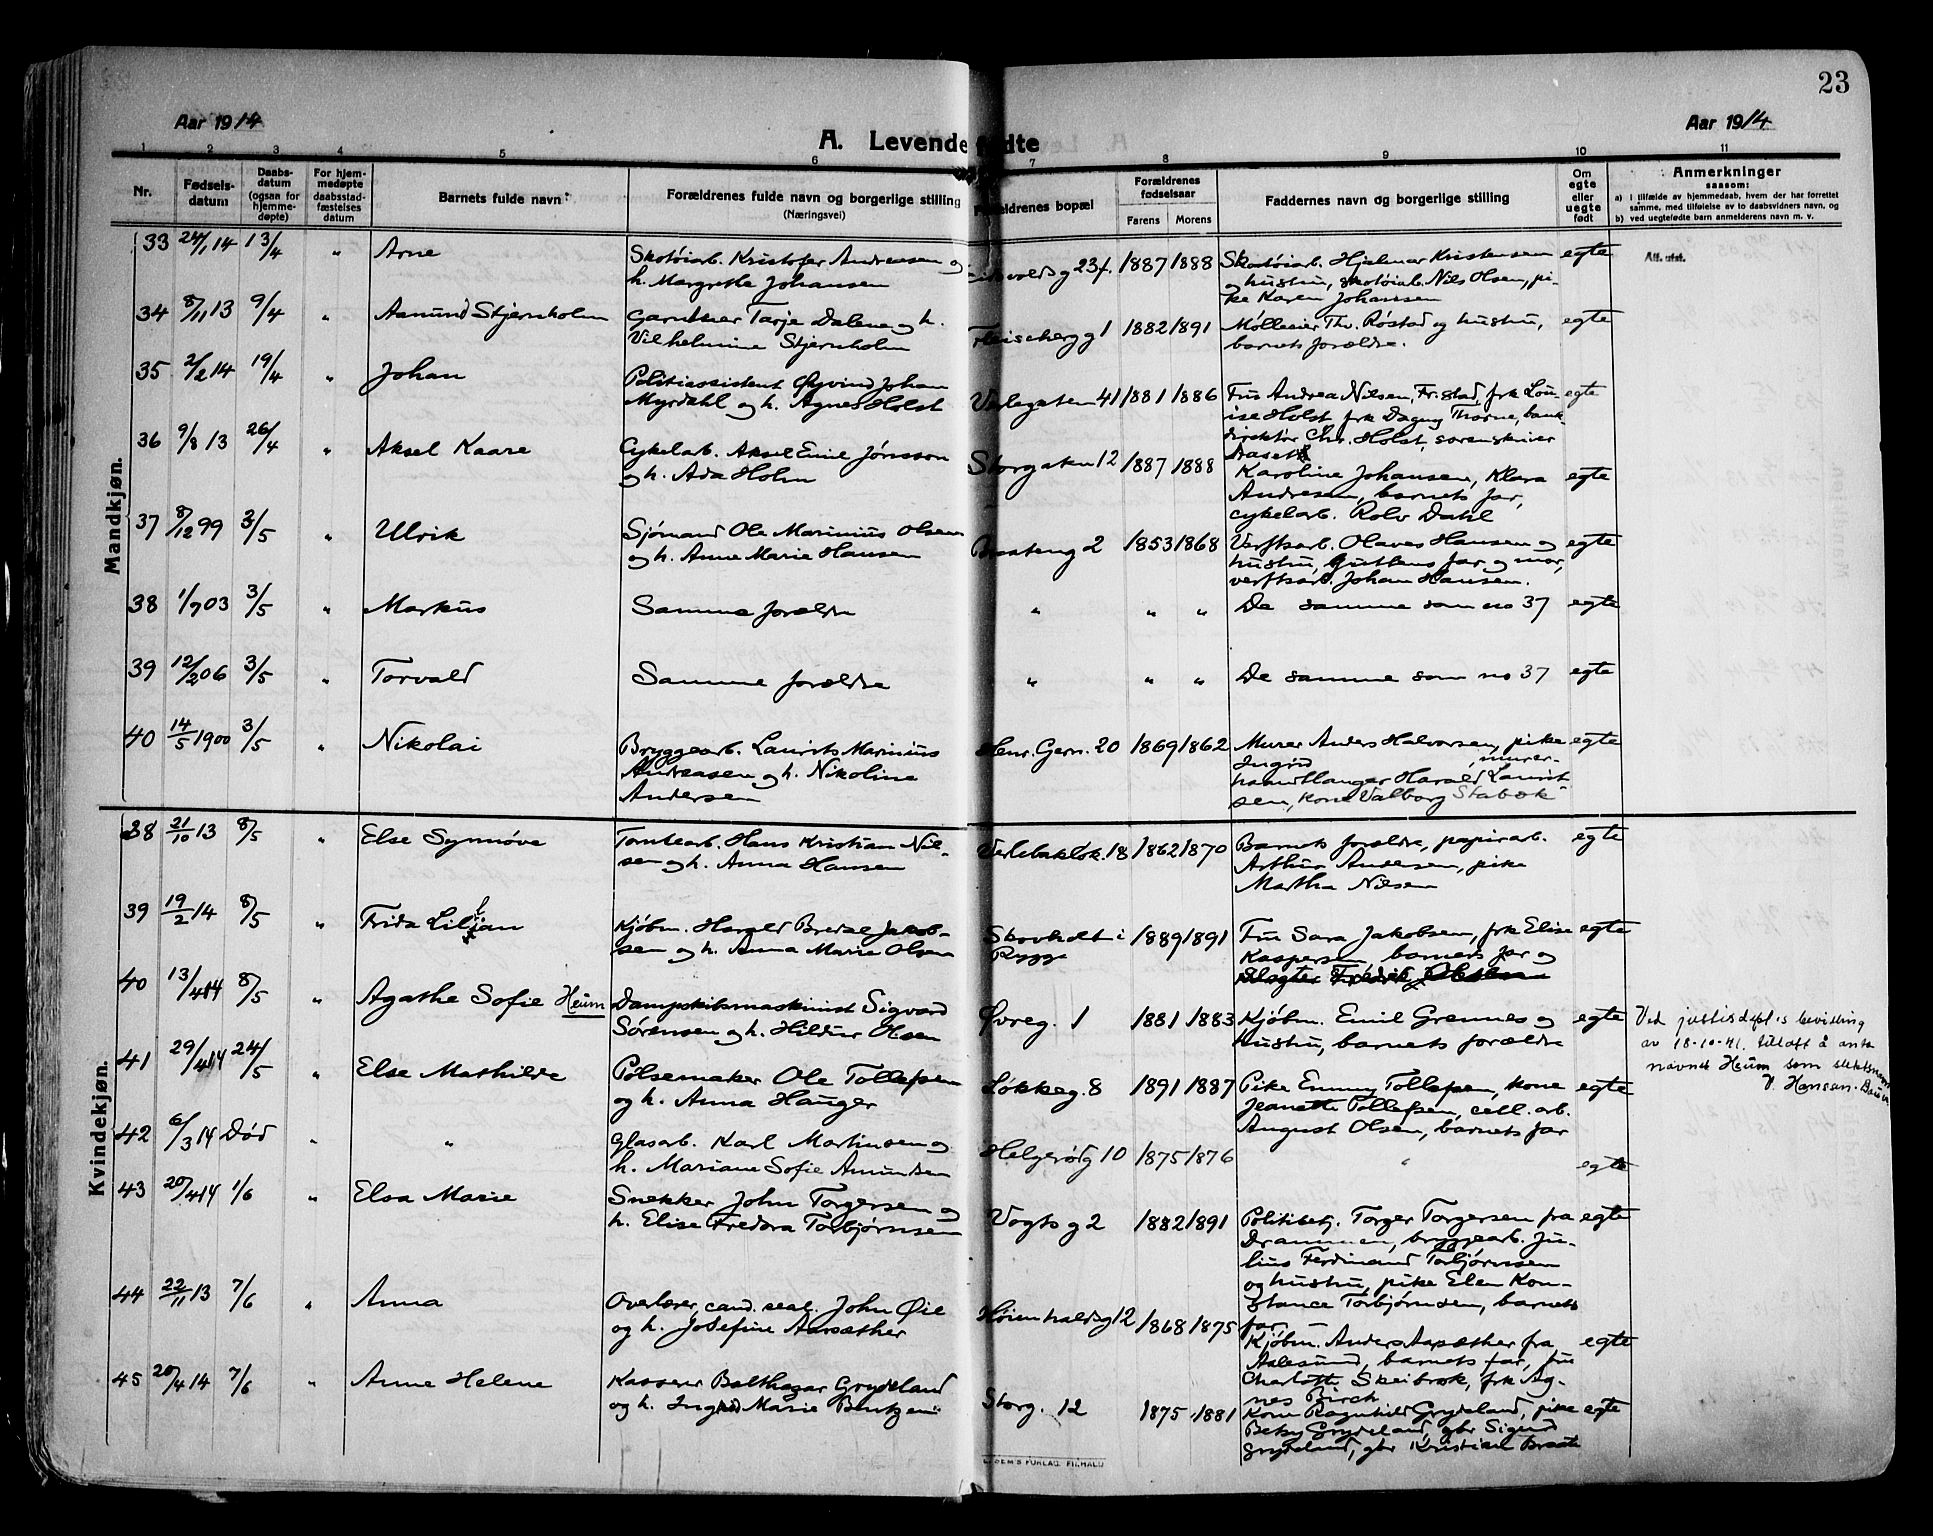 23
Aar 1914
Aar 1914
A. Levende fødte
1 2 3 4 5 6 7 8 9 10 11
Nr.
Fødsels-
datum
Daabs-
datum
(ogsaa for
hjemme-
døpte)
For hjem-
medøpte
daabsstad-
fæstelses
datum
Barnets fulde navn
Forældrenes fulde navn og borgerlige stilling
(Næringsvei)
Forældrenes bopæl
Forældrenes
fødselsaar
Farens Morens
Faddernes navn og borgerlige stilling
Om
egte
eller
uegte
født
Anmerkninger
saasom:
a) i tilfælde av hjemmedaab, hvem der har forrettet
samme, med tilføielse av to daabsvidners navn, og
b) ved uegtefødte barn anmelderens navn m. v.
Mandkjøn.
33 24/1 14 13/4 " Arne
Skotøiarb. Kristofer Andreasen og
h. Margrethe Johansen
Eidsvoldsg 23 f. 1887 1888
Skotøiarb. Hjelmar Kristensen
og hustru, skotøiarb. Nils Olsen, pi-
ke Karen Johanssen
egte
Att. utst.
34 8/11 13 9/4 " Asmund Stjernholm
Gartner Tarje Dalene og h.
Vilhelmine Stjernholm
Fleischerg 1 1882 1891
Møllerier Thv. Røstad og hustru,
barnets forældre.
egte
35 2/2 14 19/4 " Johan
Politiassistent Øyvind Johan
Myrdahl og h. Agnes Holst
Verlegaten 41 1881 1886
Fru Andrea Nilsen, Fr.stad, frk Lou-
ise Holst, frk Dagny Thorne, bank-
direktør Chr. Holst, sorenskriver
egte
36 9/8 13 26/4 " Aksel Kaare
Cykelarb. Aksel Emil Jønsson
og h. Ada Holm
Storgaten 12 1887 1888
Karoline Johansen, Klara
Andresen, barnets far,
cykelarb. Rolv Dahl
egte
37 8/12 99 3/5 " Ulrik
Sjømand Ole Marinius Olsen
og h. Anne Marie Hansen
Braateng 2 1853 1868
Verftsarb. Olaves Hansen og
hustru, guttens far og mor,
verftsarb. Johan Hansen.
egte
38 1/7 03 3/5 " Markus
Samme forældre
" " "
De samme som no 37 egte
39 12/2 06 3/5 " Torvald
Samme forældre
" " "
De samme som no 37 egte
40 14/5 1900 3/5 " Nikolai
Bryggearb. Laurits Marinius
Andreasen og h. Nikoline
Andersen
Henr. Gern. 20 1869 1862
Murer Anders Halvorsen, pike
Ingrid , murer-
haandlanger Harald Laurit-
sen, kone Valborg Stabæk
egte
Kvindekjøn.
38 21/10 13 8/5 " Else Synnøve
Tomtearb. Hans Kristian Nil-
sen og h. Anna Hansen
Verlebakløk. 18 1862 1870
Barnets forældre, papirarb.
Arthur Andersen, pike
Martha Nilsen
egte
39 19/2 14 8/5 " Frida Liljan
Kjøbm. Harald Bredal Jakob-
sen og h. Anna Marie Olsen
Skovholdt i
Rygge
1889 1891
Fru Sara Jakobsen, frk Elise
Kaspersen, barnets far og
egte
40 13/4 14 8/5 " Agathe Sofie Heum
Dampskibsmaskinist Sigvard
Sørensen og h. Hildur Olsen
Øvreg. 1 1881 1883
Kjøbm. Emil Grennes og
hustru, barnets forældre
egte
Ved justisdept's bevilling
av 18-10-41. tillatt å anta
navnet Heum som slektsnavn
41 29/4 14 24/5 " Else Mathilde
Pølsemaker Ole Tollefsen
og h. Anna Hauger
Løkkeg. 8 1891 1887
Pike Emmy Tollefsen, kone
Jeanette Tollefsen, cell. arb.
August Olsen, barnets far
egte
42 6/3 14 Død " "
Glasarb. Karl Martinsen og
h. Mariane Sofie Amundsen
Helgerødg 10 1875 1876
" egte
43 20/4 14 1/6 " Elsa Marie
Snekker John Torgersen og
h. Elise Fredora Torbjørnsen
Vogts g 2 1882 1891
Politibetj. Torger Torgersen fra
Drammen, bryggearb. Ju-
lius Ferdinand Torbjørnsen
og hustru, pike Elen Kon-
stance Torbjørnsen, barnets
far
egte
44 22/11 13 7/6 " Anna
Overlærer, cand. real. John Øie
og h. Josefine Aarsæther
Høienhaldsg 12 1868 1875
Kjøbm. Anders Aarsæther fra
Aalesund, barnets far, fru
Charlotte Skeibrok, frk Ag-
nes Birch
egte
45 20/4 14 7/6 " Anne Helene
Kasserer Balthazar Grydeland
og h. Ingrid Marie Bentzen
Storg. 12 1875 1881
Kone Ragnhild Grydeland, pike
Betsy Grydeland, gbr Sigurd
Grydeland, gbr Kristian Braate
egte